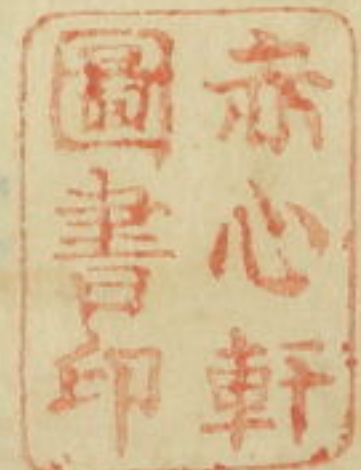 亦心軒
圖書印